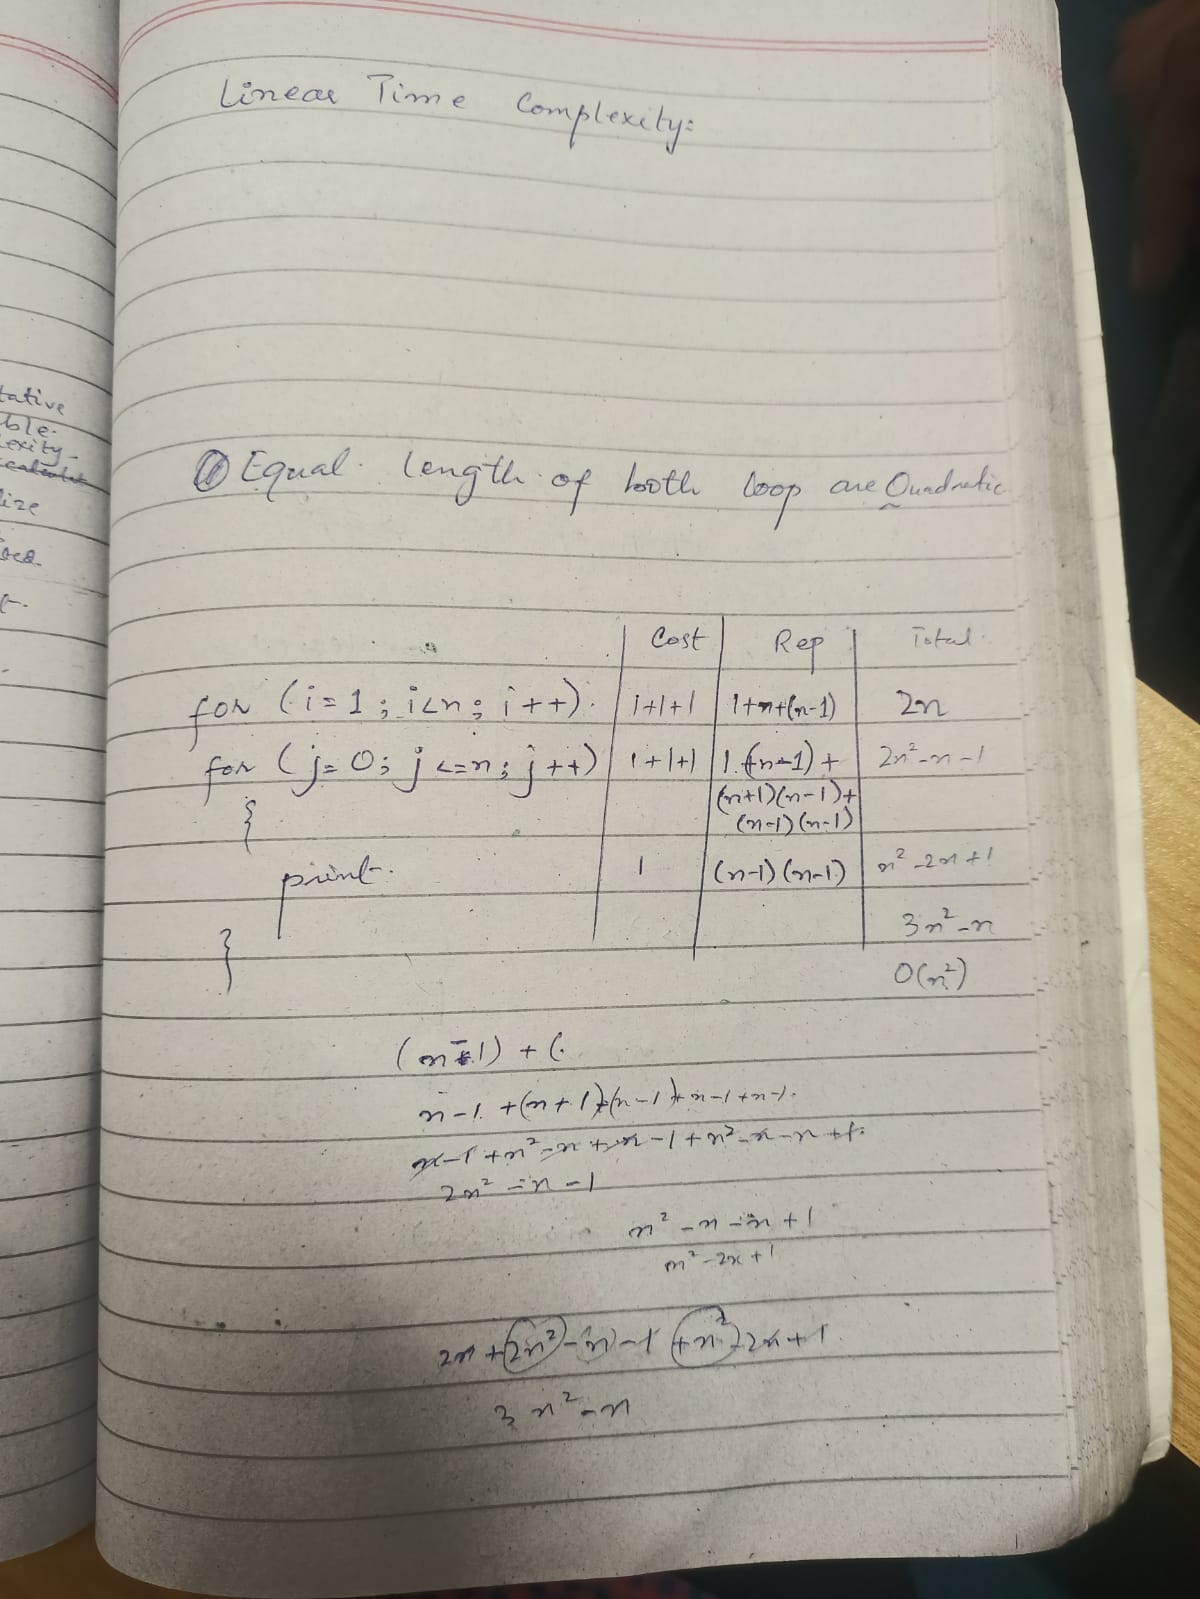 Linear Time Complexity:
tative
ble.
lexity-
ize
① Equal length of both loop are Quadratic
Cost Rep Total
for (i=1; i<n; i++). 1+1+1 1+n+(n-1) 2n
for (j=0; j<=n; j++) 1+1+1 1.(n-1)+ 2n²-n-1
{ (n+1)(n-1)+
(n-1)(n-1)
print. 1 (n-1)(n-1) n²-2n+1
3n²-n
} O(n²)
(n-1) + (.
n-1 +(n+1)+(n-1)+n-1+n-1.
n-1+n²-n+n-1+n²-n-n+1.
2n²-n-1
n²-n-n+1
n²-2n+1
2n+2n²-n-1+n²-2n+1
3n²-n